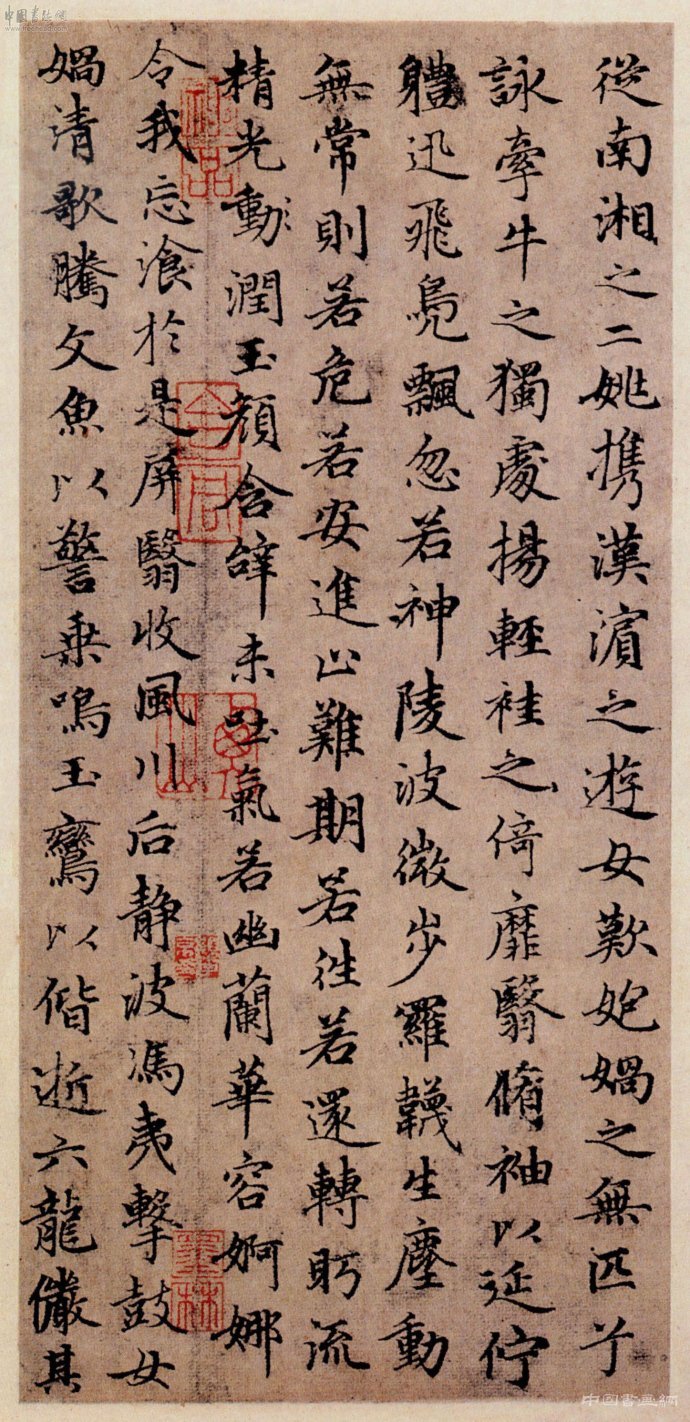 從南湘之二姚携漢濱之遊女歎媧之無匹兮
詠牽牛之獨處揚輕袿之倚靡翳脩袖以延佇
軆迅飛鳧飄忽若神陵波微步羅韈生塵動
無常則若危若安進止難期若往若還轉眄流
精光動潤玉顔含辭未吐氣若幽蘭華容婀娜
令我忘飡於是屏翳收風川后静波馮夷擊鼓女
媧清歌騰文魚以警乗鳴玉鸞以偕逝六龍儼其
神品
墨林
中國書法網
中國書畫網